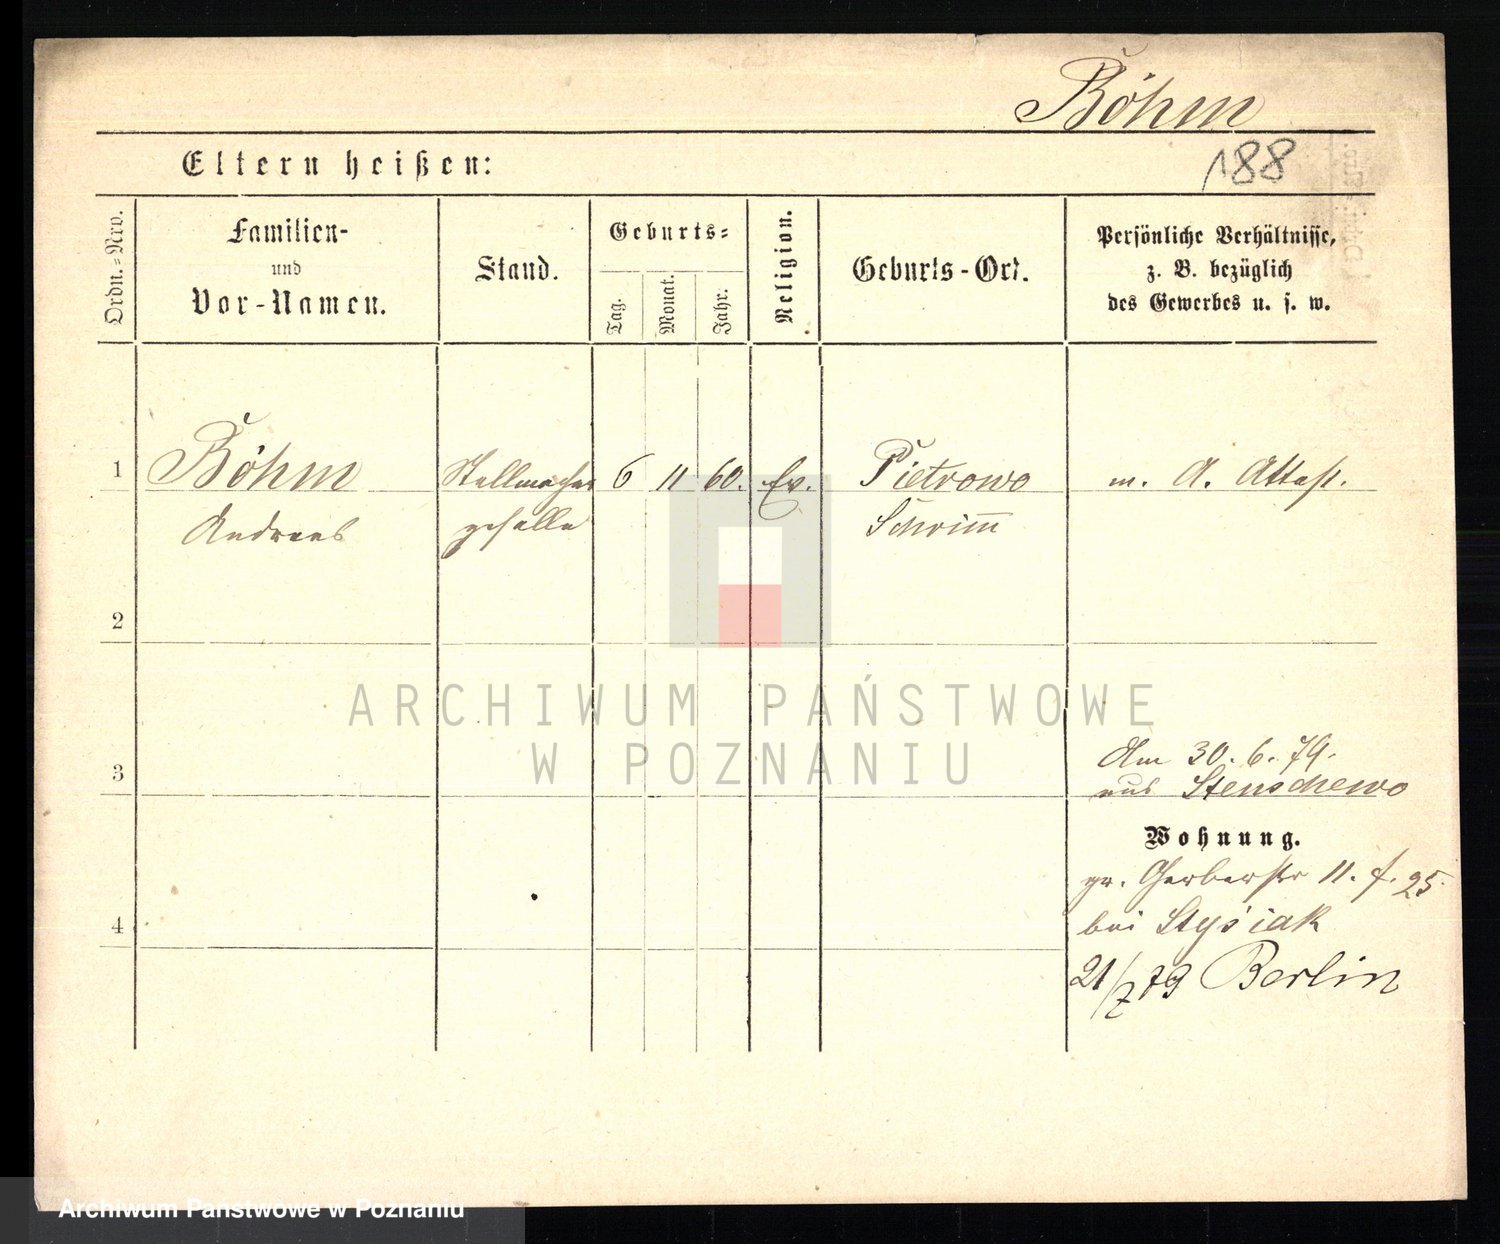 Böhm
188
Eltern heißen:
Ordn.-Nro.
Familien-
und
Vor-Namen.
Stand.
Geburts-
Tag.
Monat.
Jahr.
Religion.
Geburts-Ort.
Persönliche Verhältnisse,
z. B. bezüglich
des Gewerbes u. s. w.
1
Böhm
Andreas
Stellmacher
geselle
6 11 60. Ev.
Pietrowo
Schrimm
m. A. Attest.
2
3
Am 30. 6. 79.
aus Stenschewo
Wohnung.
gr. Gerberstr 11. f. 25.
bei Stysiak
4
21/7 79 Berlin
ARCHIWUM PAŃSTWOWE
W POZNANIU
Archiwum Państwowe w Poznaniu